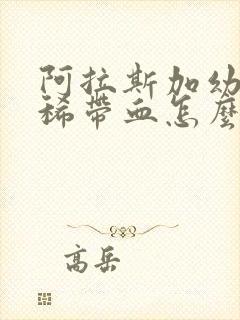 阿拉斯加幼
稀帶血怎麼
高岳